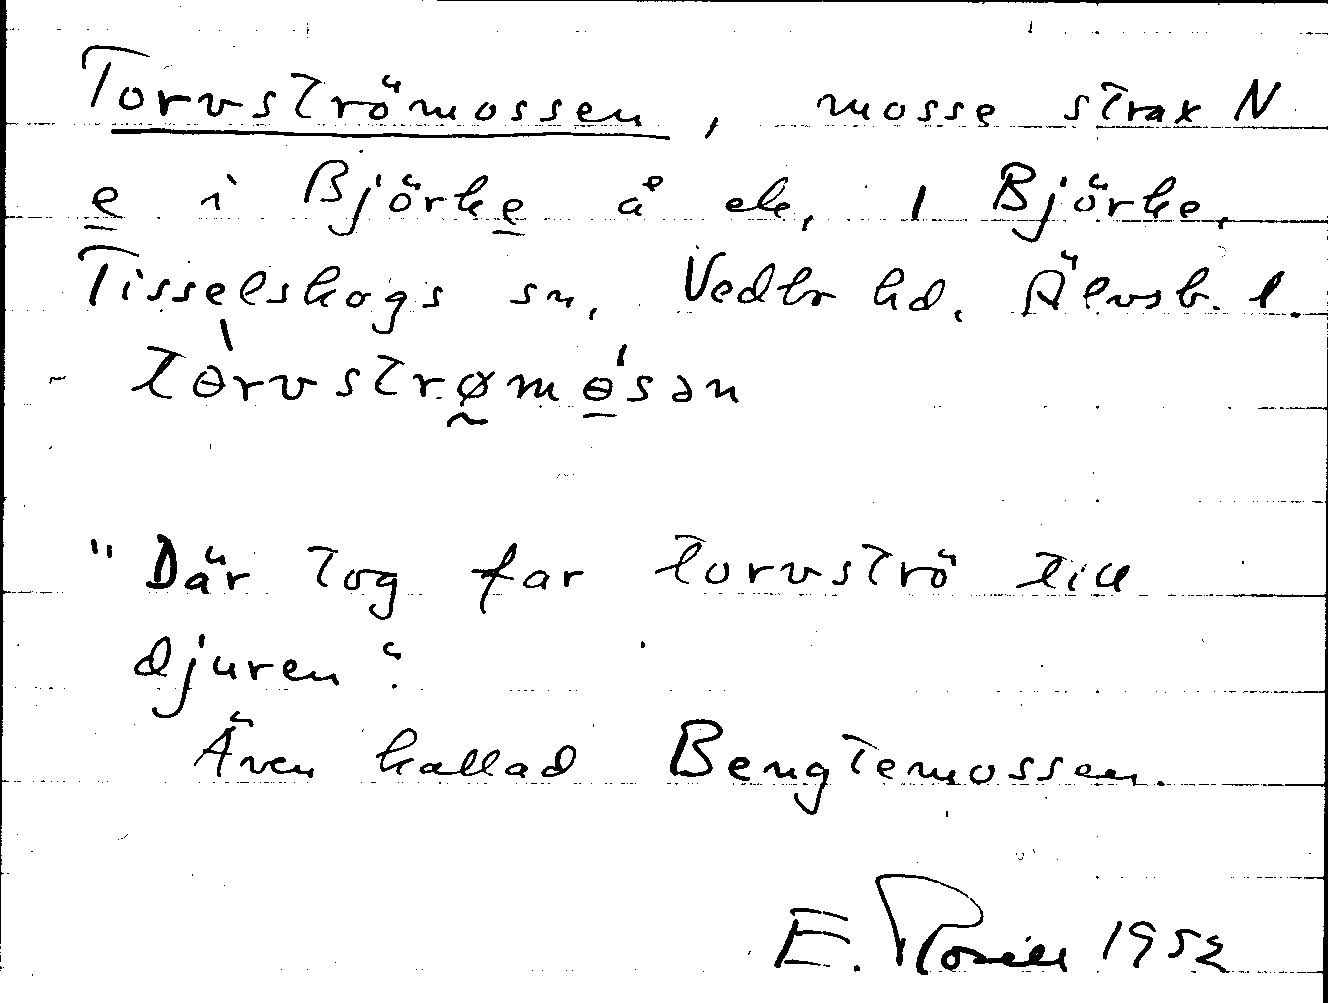 Torvströmossen, mosse strax N
e i Björke å ek, 1 Björke,
Tisselskogs sn, Vedbo hd. Älvsb. l.
- tɵ̀rvstrømɵ́sən
"Där tog far torvströ till
djuren".
Även kallad Bengtemossen.
E. Rosell 1952